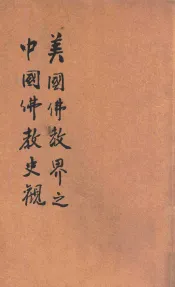 美國佛教界之
中國佛教史觀